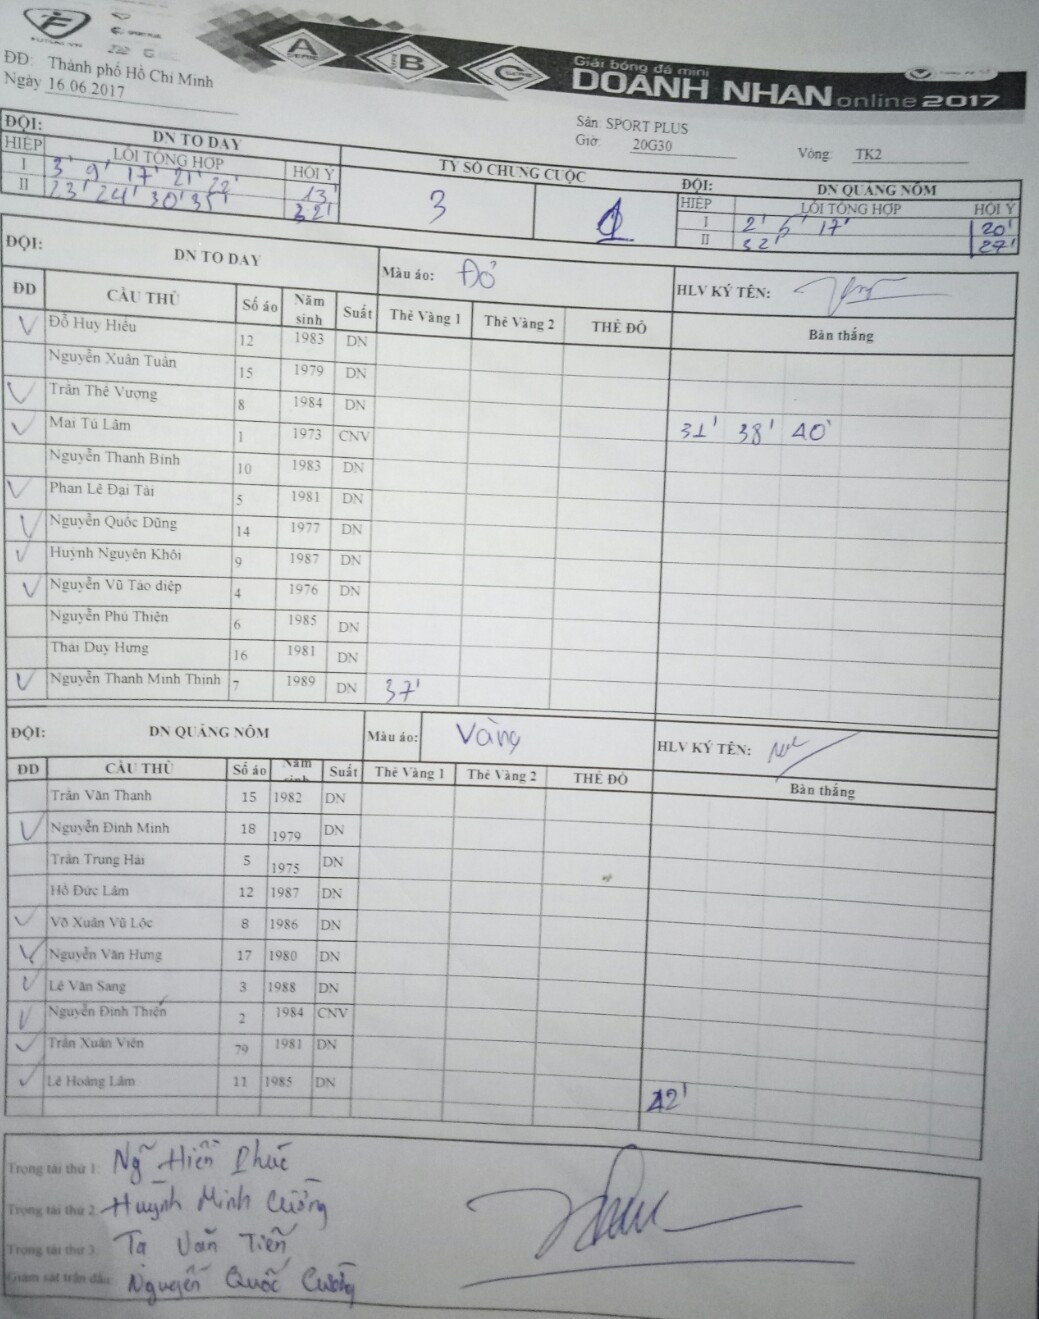 FUTSAL.VN
A
SERIE
B
SERIE
C
SERIE
Giải bóng đá mini
DOANH NHAN online 2017
ĐĐ: Thành phố Hồ Chí Minh
Ngày 16.06.2017
Sân: SPORT PLUS
Giờ: 20G30 Vòng: TK2
ĐỘI: DN TO DAY
HIỆP LỖI TỔNG HỢP HỘI Ý
I 3' 9' 17' 21' 22' 13'
II 23' 24' 30' 35' 32'
TỶ SỐ CHUNG CUỘC
3 1
ĐỘI: DN QUẢNG NÔM
HIỆP LỖI TỔNG HỢP HỘI Ý
I 2' 5' 17' 20'
II 32' 27'
ĐỘI: DN TO DAY Màu áo: Đỏ HLV KÝ TÊN:
ĐD CẦU THỦ Số áo Năm sinh Suất Thẻ Vàng 1 Thẻ Vàng 2 THẺ ĐỎ Bàn thắng
Đỗ Huy Hiếu 12 1983 DN
Nguyễn Xuân Tuấn 15 1979 DN
Trần Thế Vương 8 1984 DN
Mai Tú Lâm 1 1973 CNV 31' 38' 40'
Nguyễn Thanh Bình 10 1983 DN
Phan Lê Đại Tài 5 1981 DN
Nguyễn Quốc Dũng 14 1977 DN
Huỳnh Nguyên Khôi 9 1987 DN
Nguyễn Vũ Tảo diệp 4 1976 DN
Nguyễn Phú Thiện 6 1985 DN
Thái Duy Hưng 16 1981 DN
Nguyễn Thanh Minh Thịnh 7 1989 DN 37'
ĐỘI: DN QUẢNG NÔM Màu áo: Vàng HLV KÝ TÊN:
ĐD CẦU THỦ Số áo Năm sinh Suất Thẻ Vàng 1 Thẻ Vàng 2 THẺ ĐỎ Bàn thắng
Trần Văn Thanh 15 1982 DN
Nguyễn Đình Minh 18 1979 DN
Trần Trung Hải 5 1975 DN
Hồ Đức Lâm 12 1987 DN
Võ Xuân Vũ Lộc 8 1986 DN
Nguyễn Văn Hưng 17 1980 DN
Lê Văn Sang 3 1988 DN
Nguyễn Đình Thiện 2 1984 CNV
Trần Xuân Viên 79 1981 DN
Lê Hoàng Lâm 11 1985 DN
12'
Trọng tài thứ 1: Ng Hiền Phúc
Trọng tài thứ 2: Huỳnh Minh Cường
Trọng tài thứ 3: Tạ Văn Tiến
Giám sát trận đấu: Nguyễn Quốc Cường